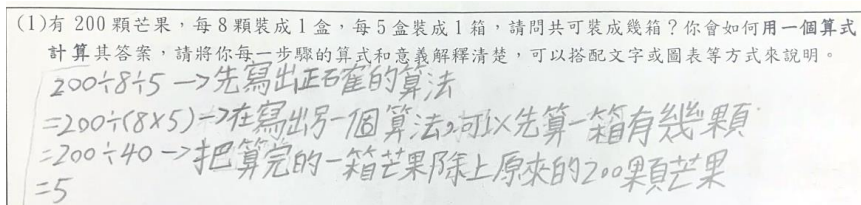 (1)有 200 顆芒果，每 8 顆裝成 1 盒，每 5 盒裝成 1 箱，請問共可裝成幾箱？你會如何用一個算式
計算其答案，請將你每一步驟的算式和意義解釋清楚，可以搭配文字或圖表等方式來說明。
200÷8÷5 →先寫出正確的算法
=200÷(8×5)→在寫出另一個算法,可以先算一箱有幾顆
=200÷40 →把算完的一箱芒果除上原來的200顆芒果
=5